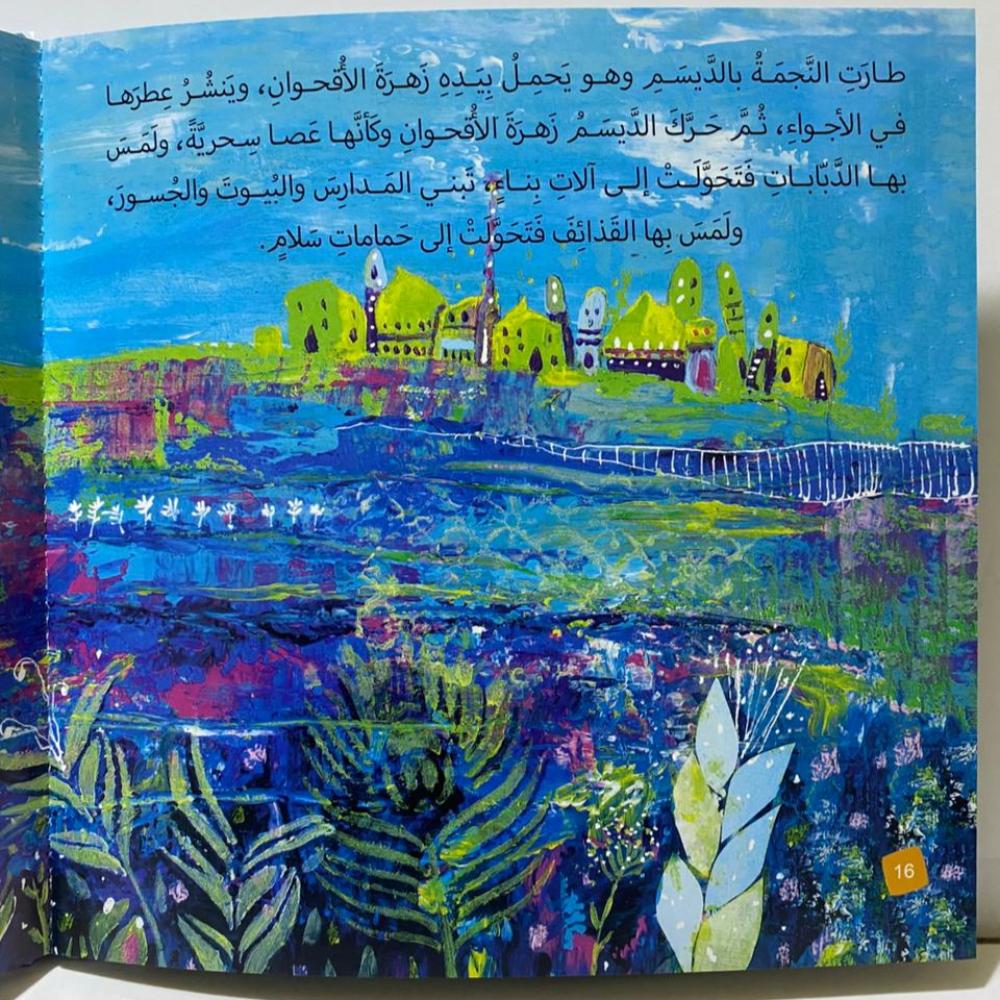 طارَتِ النَّجمَةُ بالدَّيسَمِ وهو يَحمِلُ بِيَدِهِ زَهرَةَ الأُقحوانِ، ويَنشُرُ عِطرَها
في الأجواءِ، ثُمَّ حَرَّكَ الدَّيسَمُ زَهرَةَ الأُقحوانِ وكَأنَّها عَصا سِحريَّةً، ولَمَسَ
بها الدَّبّاباتِ فَتَحَوَّلَتْ إلى آلاتِ بِناءٍ، تَبني المَدارِسَ والبُيوتَ والجُسورَ،
ولَمَسَ بِها القَذائِفَ فَتَحَوَّلَتْ إلى حَماماتِ سَلامٍ.
16